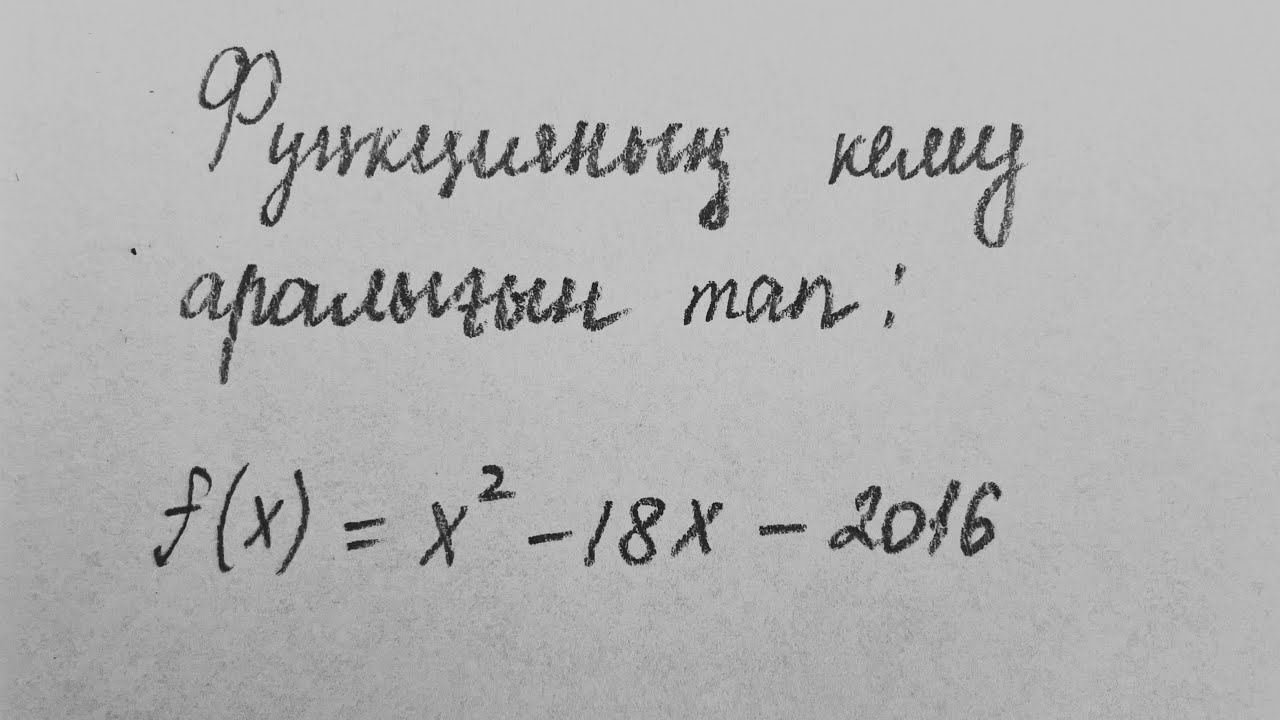 Функцияның кему
аралығын тап:
f(x) = x² - 18x - 2016